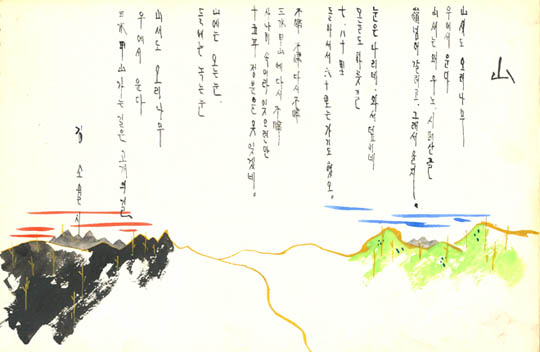 山
山새도 오리나무
우에서 운다
山새는 왜 우노, 시메山골
嶺넘어 갈라고, 그래서 울지.
눈은 나리네, 와서 덮이네
오늘도 하룻길
七·八十里
돌아서서 六十里는 가기도 했오.
不歸 不歸 다시 不歸
三水甲山에 다시 不歸
사나이 속이라 잊으련만
十五年 정분을 못 잊겠네.
山에는 오는 눈.
들에는 녹는 눈
山새도 오리나무
우에서 운다
三水甲山 가는 길은 고개의 길.
김 소월 시